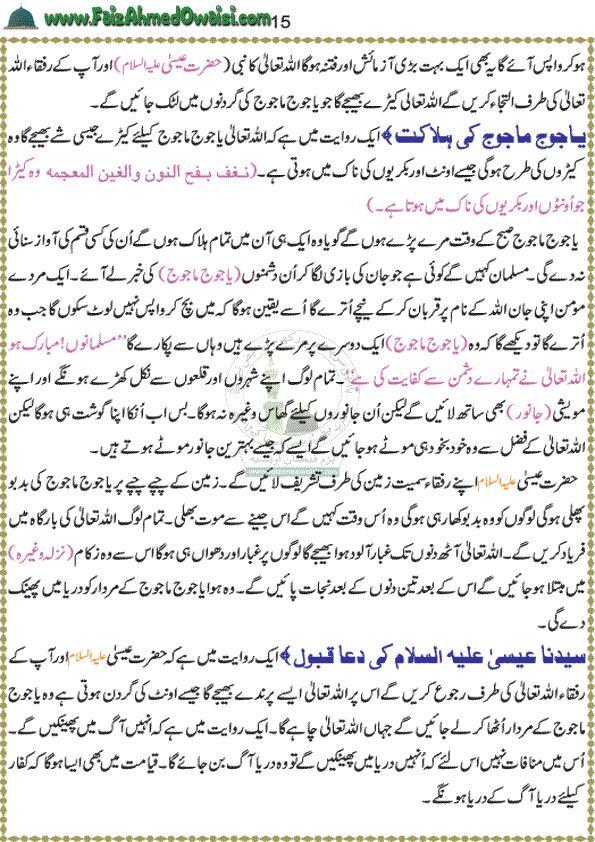 www.FaizAhmedOwaisi.com 15
ہو کر واپس آئے گا یہ بھی ایک بہت بڑی آزمائش اور فتنہ ہوگا اللہ تعالیٰ کا نبی (حضرت عیسیٰ علیہ السلام) اور آپ کے رفقاء اللہ
تعالیٰ کی طرف التجاء کریں گے اللہ تعالیٰ کیڑے بھیجے گا جو یاجوج ماجوج کی گردنوں میں لٹک جائیں گے۔
یاجوج ماجوج کی ہلاکت﴾ ایک روایت میں ہے کہ اللہ تعالیٰ یاجوج ماجوج کیلئے کیڑے جیسی شے بھیجے گا وہ
کیڑوں کی طرح ہوگی جیسے اونٹ اور بکریوں کی ناک میں ہوتی ہے۔ (نغف بفح النون والغین المعجمه وہ کیڑا
جو اُونٹوں اور بکریوں کی ناک میں ہوتا ہے۔)
یاجوج ماجوج صبح کے وقت مرے پڑے ہوں گے گویا وہ ایک ہی آن میں تمام ہلاک ہوں گے اُن کی کسی قسم کی آواز سنائی
نہ دے گی۔ مسلمان کہیں گے کوئی ہے جو جان کی بازی لگا کر اُن دشمنوں (یاجوج ماجوج) کی خبر لے آئے۔ ایک مردے
مومن اپنی جان اللہ کے نام پر قربان کر کے نیچے اُترے گا اُسے یقین ہوگا کہ میں بچ کر واپس نہیں لوٹ سکوں گا جب وہ
اُترے گا تو دیکھے گا کہ وہ (یاجوج ماجوج) ایک دوسرے پر مرے پڑے ہیں وہاں سے پکارے گا ”مسلمانوں! مبارک ہو
اللہ تعالیٰ نے تمہارے دشمن سے کفایت کی ہے“۔ تمام لوگ اپنے شہروں اور قلعوں سے نکل کھڑے ہونگے اور اپنے
مویشی (جانور) بھی ساتھ لائیں گے لیکن اُن جانوروں کیلئے گھاس وغیرہ نہ ہوگا۔ بس اب اُنکا اپنا گوشت ہی ہوگا لیکن
اللہ تعالیٰ کے فضل سے وہ خود بخود ہی موٹے ہو جائیں گے ایسے کہ جیسے بہترین جانور موٹے ہوتے ہیں۔
حضرت عیسیٰ علیہ السلام اپنے رفقاء سمیت زمین کی طرف تشریف لائیں گے۔ زمین کے چپے چپے پر یاجوج ماجوج کی بدبو
پھیلی ہوگی لوگوں کو وہ بدبو کھا رہی ہوگی وہ اُس وقت کہیں گے اس جینے سے موت بھلی۔ تمام لوگ اللہ تعالیٰ کی بارگاہ میں
فریاد کریں گے۔ اللہ تعالیٰ آٹھ دنوں تک غبار آلود ہوا بھیجے گا لوگوں پر غبار اور دھواں ہی ہوگا اس سے وہ زکام (نزلہ وغیرہ)
میں مبتلا ہو جائیں گے اس کے بعد تین دنوں کے بعد نجات پائیں گے۔ وہ ہوا یاجوج ماجوج کے مردار کو دریا میں پھینک
دے گی۔
سیدنا عیسیٰ علیہ السلام کی دعا قبول﴾ ایک روایت میں ہے کہ حضرت عیسیٰ علیہ السلام اور آپ کے
رفقاء اللہ تعالیٰ کی طرف رجوع کریں گے اس پر اللہ تعالیٰ ایسے پرندے بھیجے گا جیسے اونٹ کی گردن ہوتی ہے وہ یاجوج
ماجوج کے مردار اُٹھا کر لے جائیں گے جہاں اللہ تعالیٰ چاہے گا۔ ایک روایت میں ہے کہ انہیں آگ میں پھینکیں گے۔
اُس میں منافات نہیں اس لئے کہ اُنہیں دریا میں پھینکیں گے تو وہ دریا آگ بن جائے گا۔ قیامت میں بھی ایسا ہوگا کہ کفار
کیلئے دریا آگ کے دریا ہونگے۔
www.faizaneowaisia.com